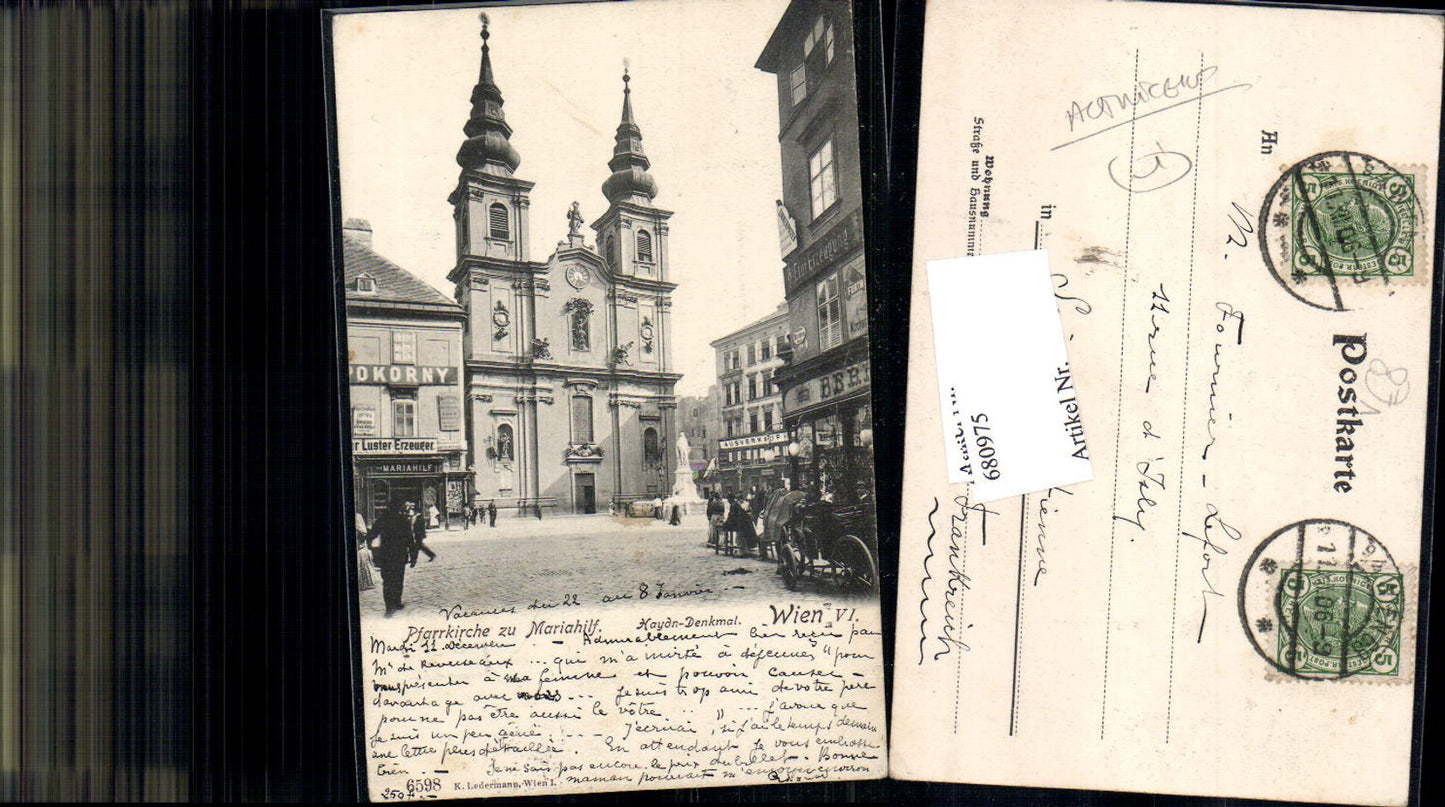 POKORNY
Luster Erzeuger
MARIAHILF
AUSVERKAUF
BER
Vacances du 22 au 8 Janvier. —
Pfarrkirche zu Mariahilf. Haydn-Denkmal. Wien VI.
Mardi 11 Décembre. — Admirablement bien reçu par
Mr de ... qui m'a invité à déjeuner "pour
présenter à sa femme et pouvoir causer
davantage avec ... Je suis trop ami de votre père
pour ne pas être aussi le vôtre " ... J'avoue que
je suis un peu gêné! ... J'écrirai, si j'ai le temps demain
une lettre plus détaillée. En attendant je vous embrasse
bien. — Je ne sais pas encore le prix du billet. Bonne
maman pourrait m'envoyer environ
250 f. —
6598 K. Ledermann, Wien I.
Postkarte
An
M. Fournier-Lefort
11 rue d'Isly.
in
Vienne
Frankreich
Wohnung
Straße und Hausnummer
Artikel Nr.
680975